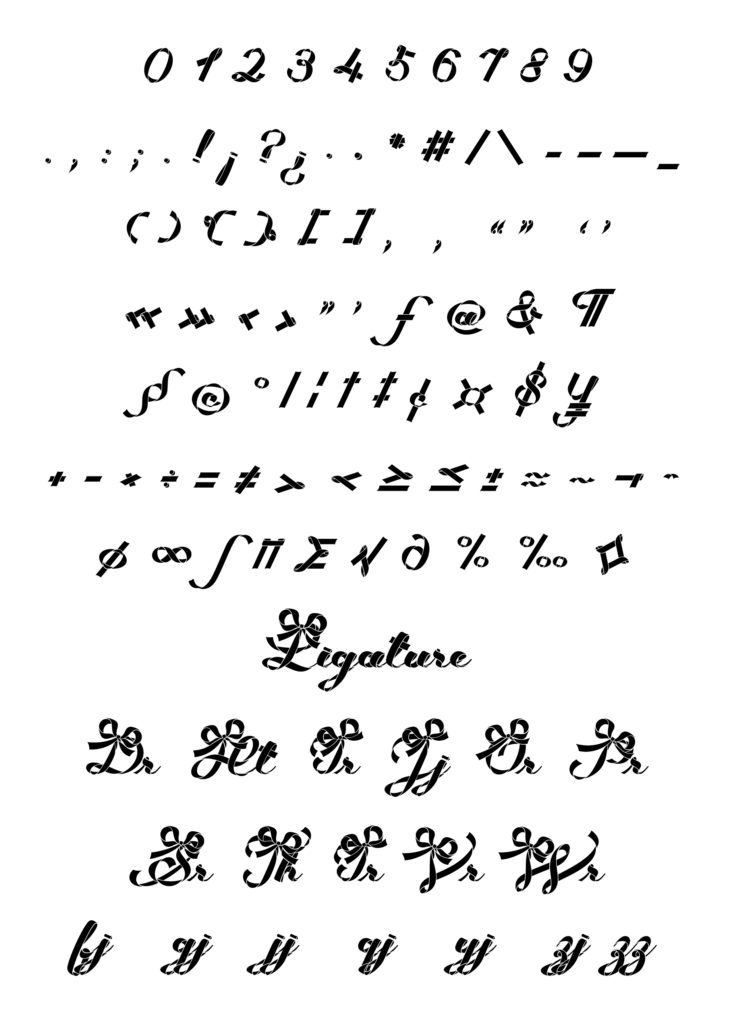 0 1 2 3 4 5 6 7 8 9
. , : ; . ! ¡ ? ¿ · · * # / \ - – — _
( ) { } [ ] ‚ „ “ ” ‘ ’
« » ‹ › " ' ƒ @ & ¶
§ © ° | ¦ † ‡ ¢ ¤ $ ¥
+ − × ÷ = ≠ > < ≥ ≤ ± ≈ ~ ¬ ^
ø ∞ ∫ ∏ ∑ √ ∂ % ‰ ◊
Ligature
Dr Ir Or Pr
Sr Th Tr Vr Wr
bj gj jj qj yj zj zz